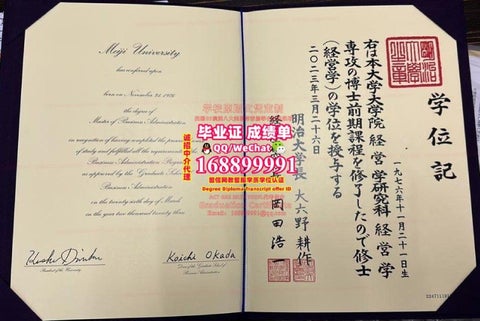 Meiji University
has conferred upon
born on November 21, 1976
the degree of
Master of Business Administration
in recognition of having completed the
of study and fulfilled all the
Business Administration
as approved by the Graduate School of
Business Administration
on the twenty-sixth day of March
in the year two thousand twenty three
President of the University
Koichi Okada
Dean of the Graduate School of
Business Administration
毕业证成绩单
QQ/WeChat
168899991
诚招中介代理
Degree Diploma Transcript offer ID
学位記
一九七六年十一月二十一日生
右は本大学大学院経営学研究科経営学
専攻の博士前期課程を修了したので修士
（経営学）の学位を授与する
二〇二三年三月二十六日
明治大学長 大六野耕作
岡田浩一